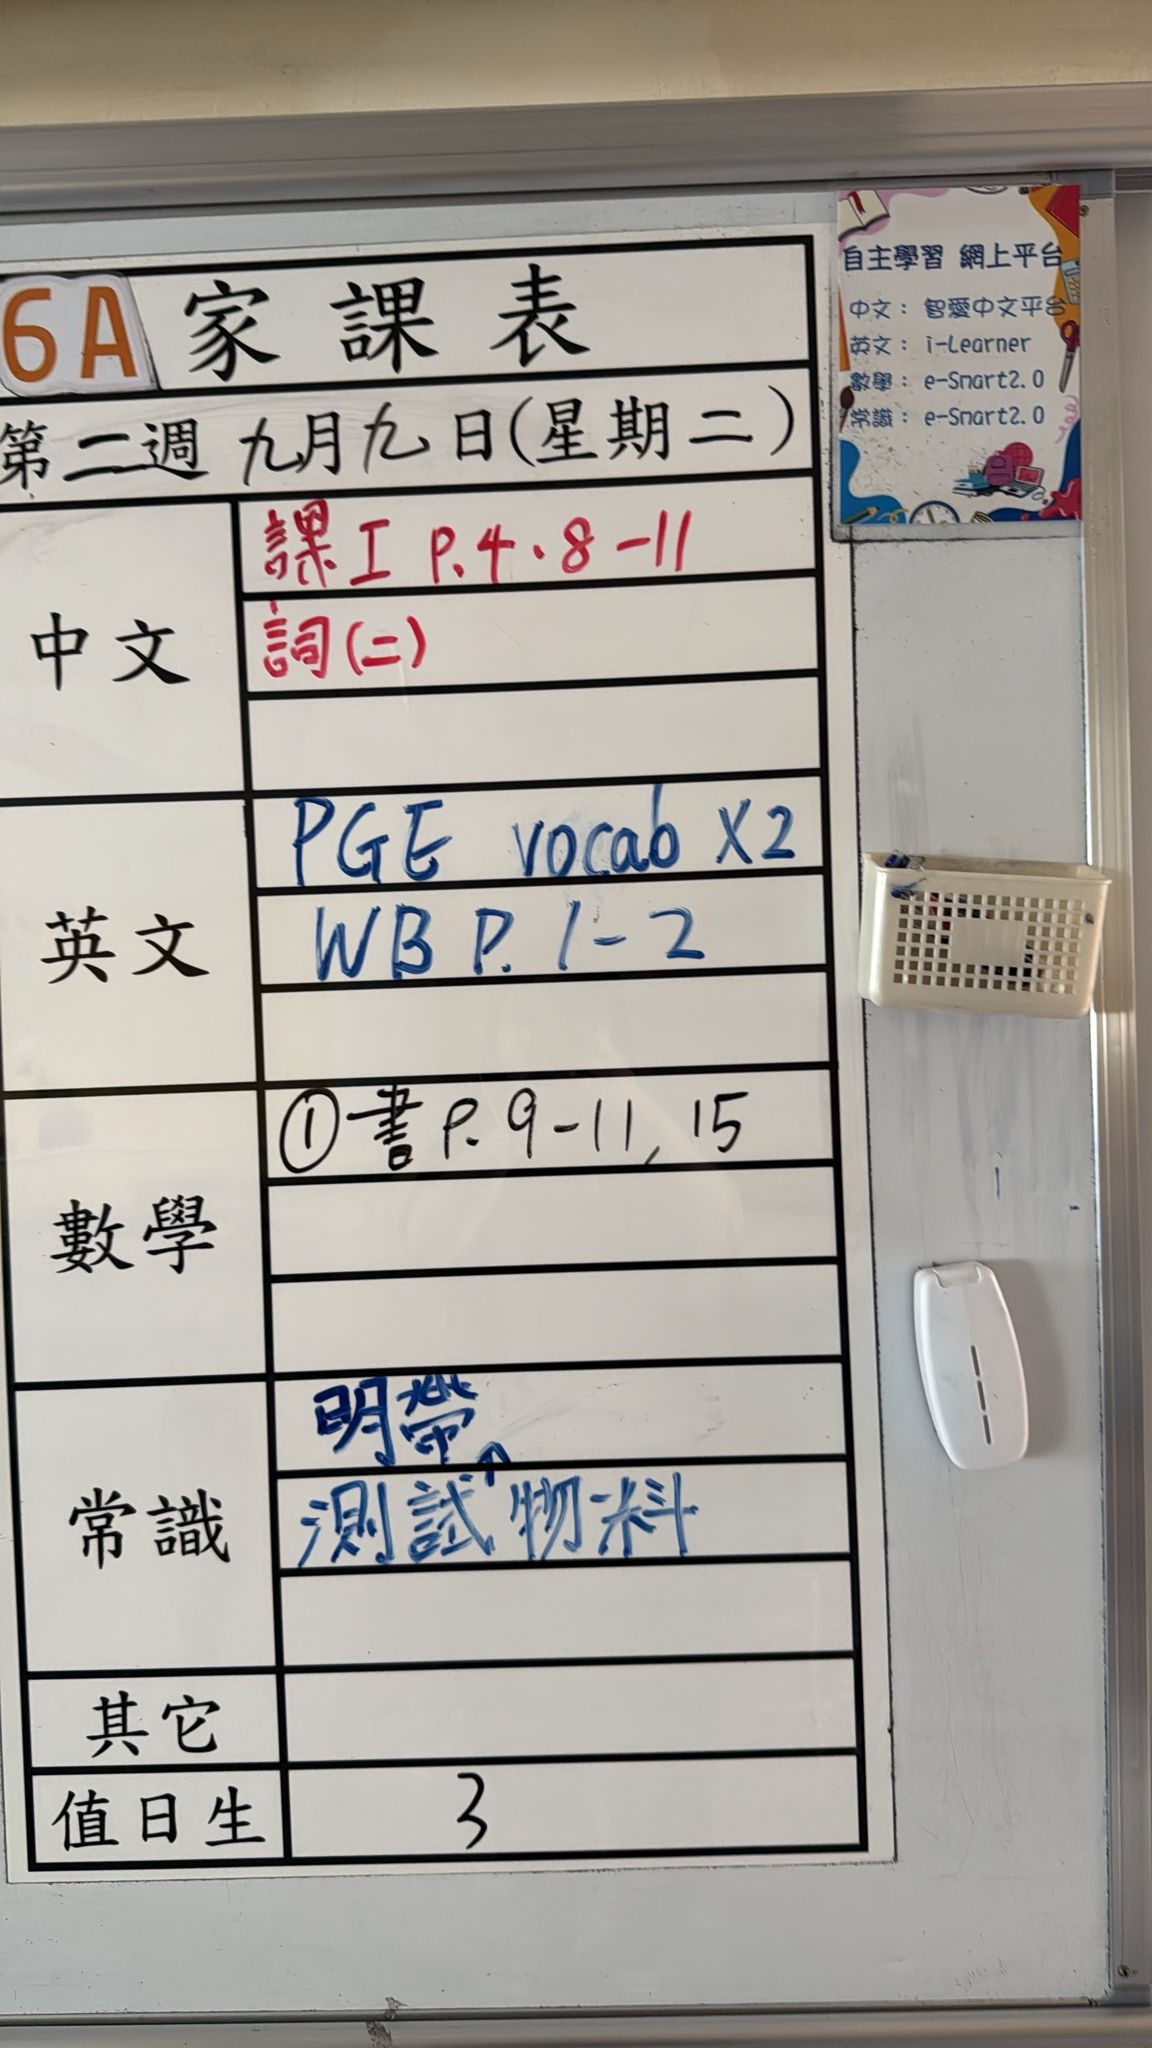 6A 家課表
第二週 九月九日(星期二)
中文
課工 P.4．8-11
詞(二)
英文
PGE vocab X2
WB P. 1-2
數學
①書 P. 9-11, 15
常識
明帶
測試物料
其它
值日生
3
自主學習 網上平台
中文： 智愛中文平台
英文： i-Learner
數學： e-Smart2.0
常識： e-Smart2.0